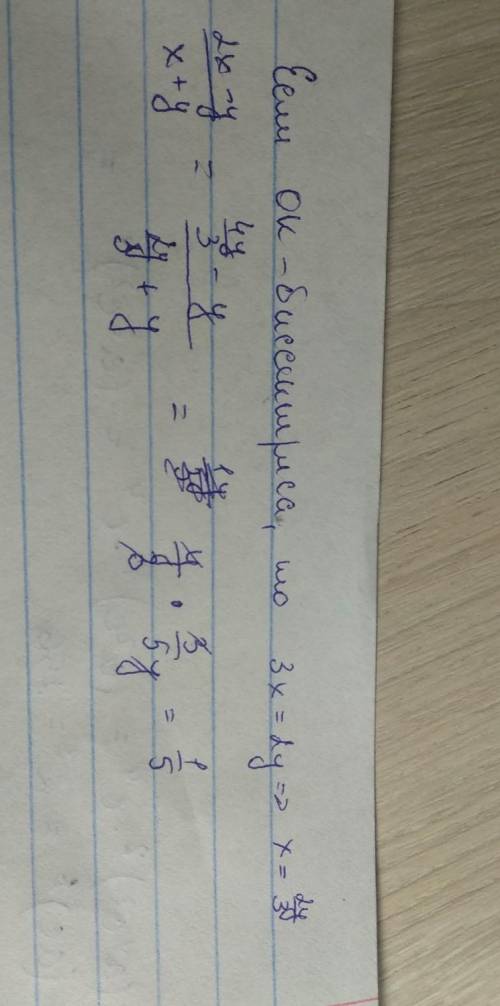 Если OK - биссектриса, то 3x = 2y => x = 2y/3
(2x - y)/(x + y) = (4y/3 - y)/(2y/3 + y) = y/3 · 3/5y = 1/5